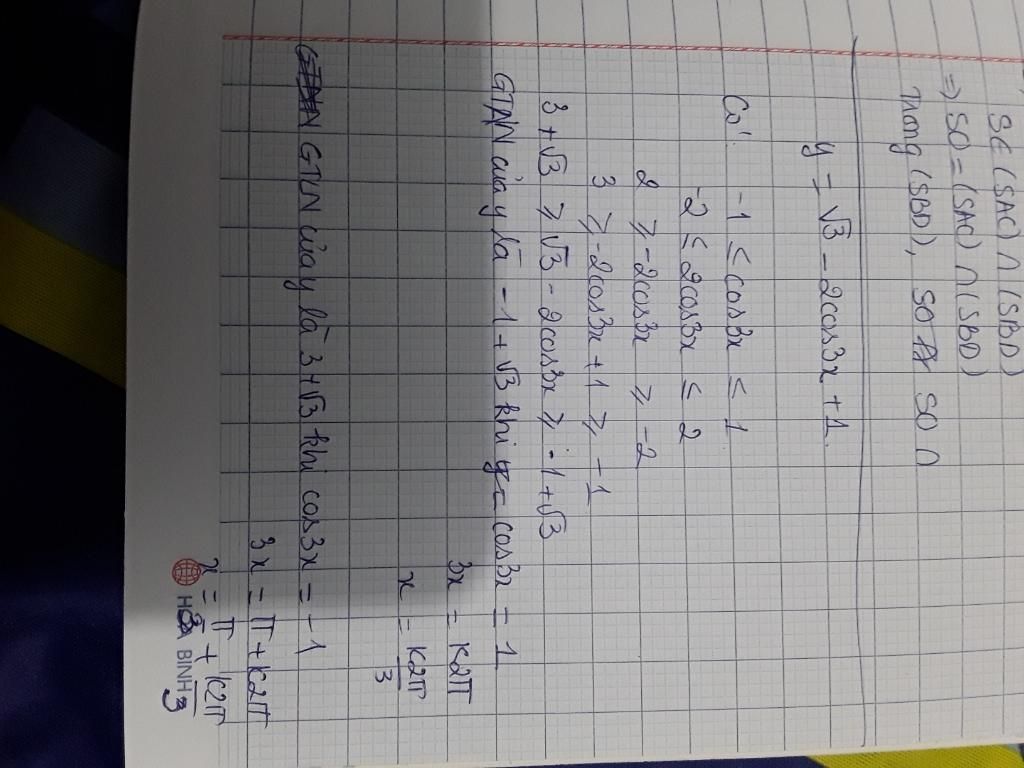 SE (SAC) ∩ (SBD)
⇒ SO = (SAC) ∩ (SBD)
Trong (SBD), SO SO ∩
y = √3 - 2cos3x + 1.
Có: -1 ≤ cos3x ≤ 1
-2 ≤ 2cos3x ≤ 2
2 ≥ -2cos3x ≥ -2
3 ≥ -2cos3x + 1 ≥ -1
3 + √3 ≥ √3 - 2cos3x ≥ -1 + √3
GTNN của y là -1 + √3 khi cos3x = 1
3x = K2π
x = K2π/3
GTLN của y là 3 + √3 khi cos3x = -1
3x = π + K2π
x = π/3 + K2π/3
HÒA BÌNH